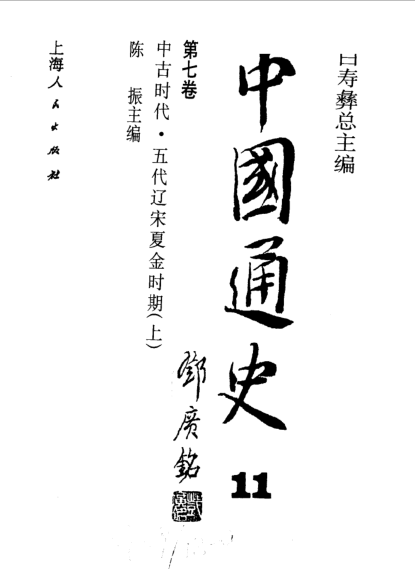 白寿彝总主编
中國通史
11
鄧廣銘
第七卷
中古时代·五代辽宋夏金时期(上)
陈 振主编
上海人民出版社